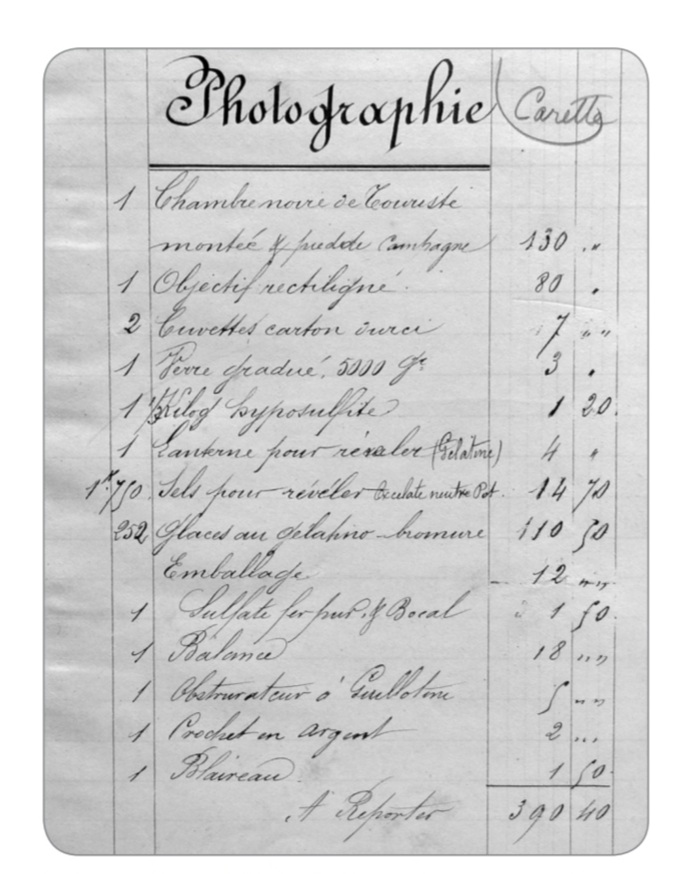 Photographie Carette
1 Chambre noire de Touriste
montée & pied de Campagne 130 "
1 Objectif rectiligne 80 "
2 Cuvettes carton durci 7 " "
1 Verre gradué, 5000 Gr 3 "
1 1/2 Kilog hyposulfite 1 20
1 Lanterne pour révéler (Gélatine) 4 "
1K.750 Sels pour révéler Oxalate neutre Pot. 14 70
252 Glaces au gelatino-bromure 110 50
Emballage 12 " "
1 Sulfate fer pur & Bocal 1 50
1 Balance 18 " "
1 Obsturateur à Guillotine 5 " "
1 Crochet en argent 2 " "
1 Blaireau 1 50
A Reporter 390 40